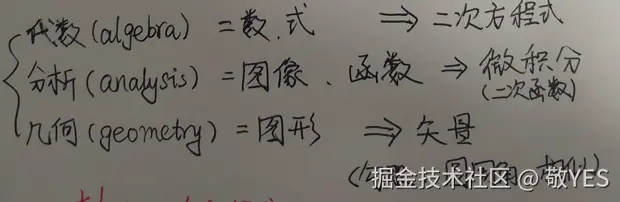 代数(algebra) = 数.式 ⇒ 二次方程式
分析(analysis) = 图像、函数 ⇒ 微积分
(二次函数)
几何(geometry) = 图形 ⇒ 矢量
圆周角 相似)
掘金技术社区 @ 敬YES